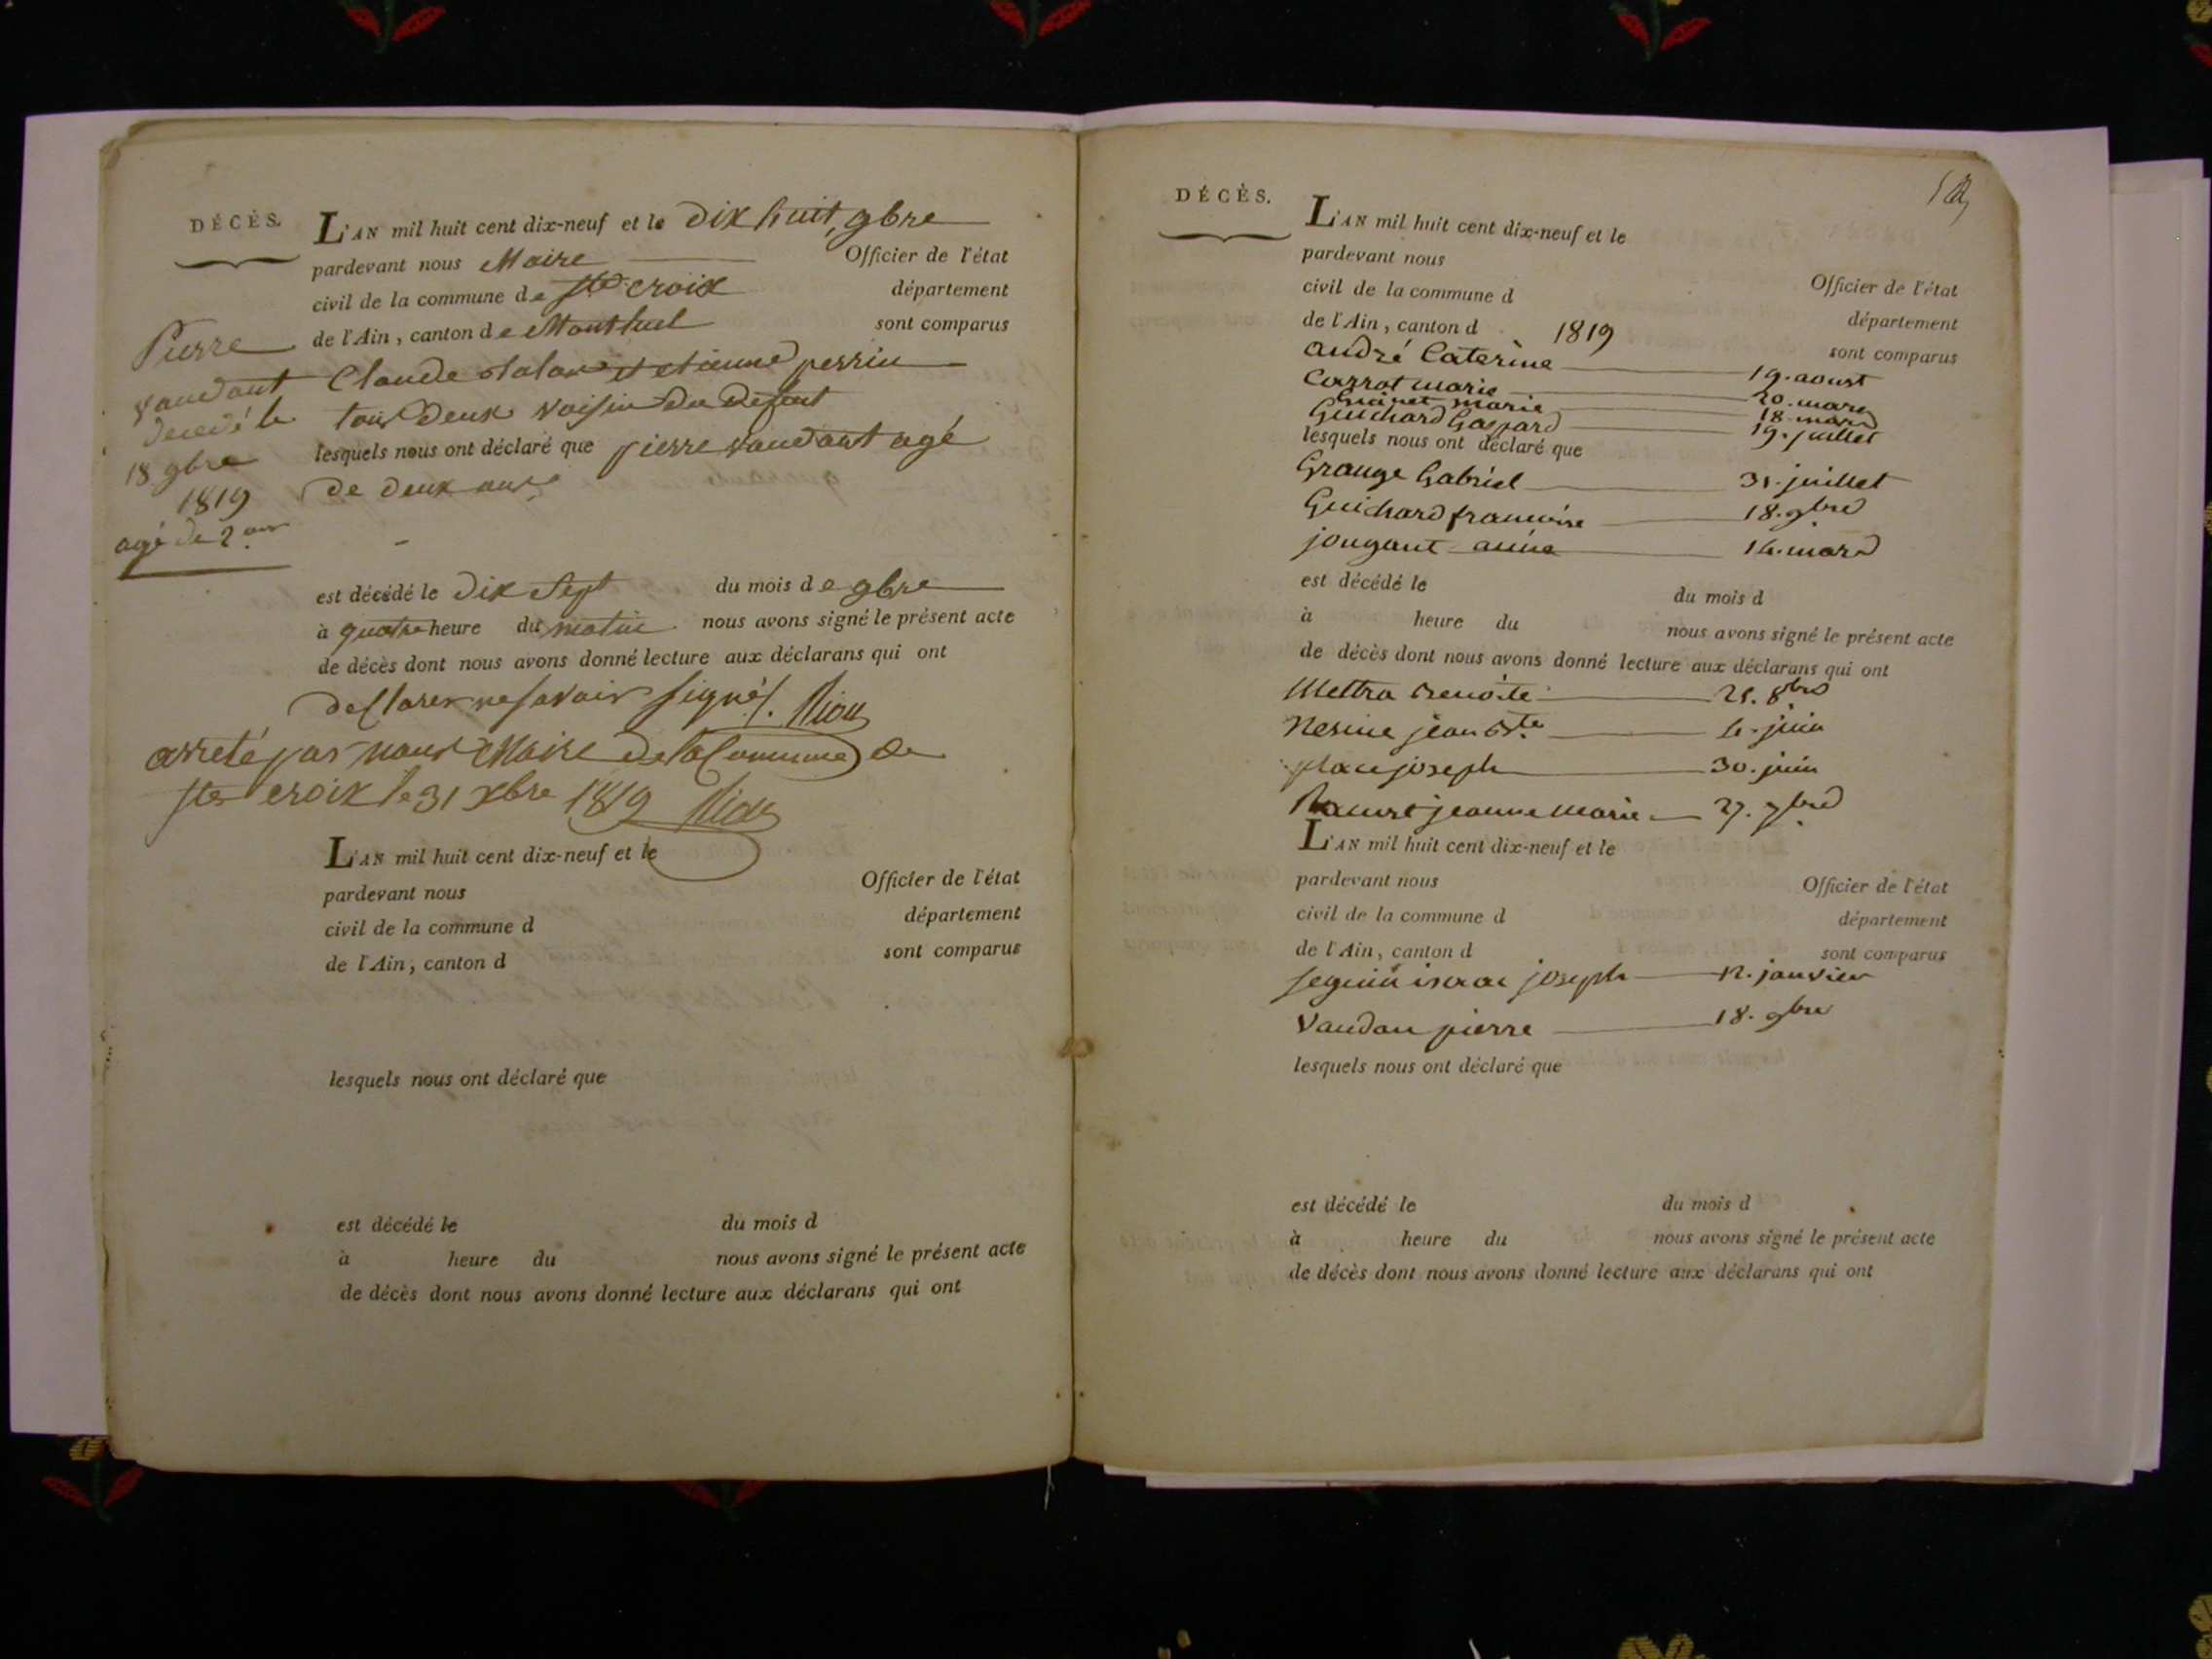 DÉCÈS.
L'AN mil huit cent dix-neuf et le Dix huit, gbre
pardevant nous Maire Officier de l'état
civil de la commune de Ste croix département
de l'Ain, canton de Montluel sont comparus
Pierre
vaudant
decedé le
18 gbre
1819
agé de 2 ans
Claude et etienne perrin
tous deux voisin du Defunt
lesquels nous ont déclaré que pierre vaudant agé
de deux ans
est décédé le dix Sept du mois de gbre
à quatre heure du matin nous avons signé le présent acte
de décès dont nous avons donné lecture aux déclarans qui ont
declarer ne savoir signé.
arreté par nous Maire de la Commune de
Ste croix le 31 xbre 1819
L'AN mil huit cent dix-neuf et le
pardevant nous Officier de l'état
civil de la commune d département
de l'Ain, canton d sont comparus
lesquels nous ont déclaré que
est décédé le du mois d
à heure du nous avons signé le présent acte
de décès dont nous avons donné lecture aux déclarans qui ont
DÉCÈS.
L'AN mil huit cent dix-neuf et le
pardevant nous Officier de l'état
civil de la commune d département
de l'Ain, canton d sont comparus
1819
andré Caterine 19. aoust
Carrot marie 20. mars
Guinet marie 18 mars
Guichard Gaspard 19. juillet
lesquels nous ont déclaré que
Grange Gabriel 31. juillet
Guichard francoise 18. gbre
jougant anne 14. mars
est décédé le du mois d
à heure du nous avons signé le présent acte
de décès dont nous avons donné lecture aux déclarans qui ont
Mettra Benoite 21. 8bre
Nesme jean Bte 4. juin
place joseph 30. juin
jeanne marie 27. 7bre
L'AN mil huit cent dix-neuf et le
pardevant nous Officier de l'état
civil de la commune d département
de l'Ain, canton d sont comparus
seguin isaac joseph 12. janvier
Vaudan pierre 18. gbre
lesquels nous ont déclaré que
est décédé le du mois d
à heure du nous avons signé le présent acte
de décès dont nous avons donné lecture aux déclarans qui ont